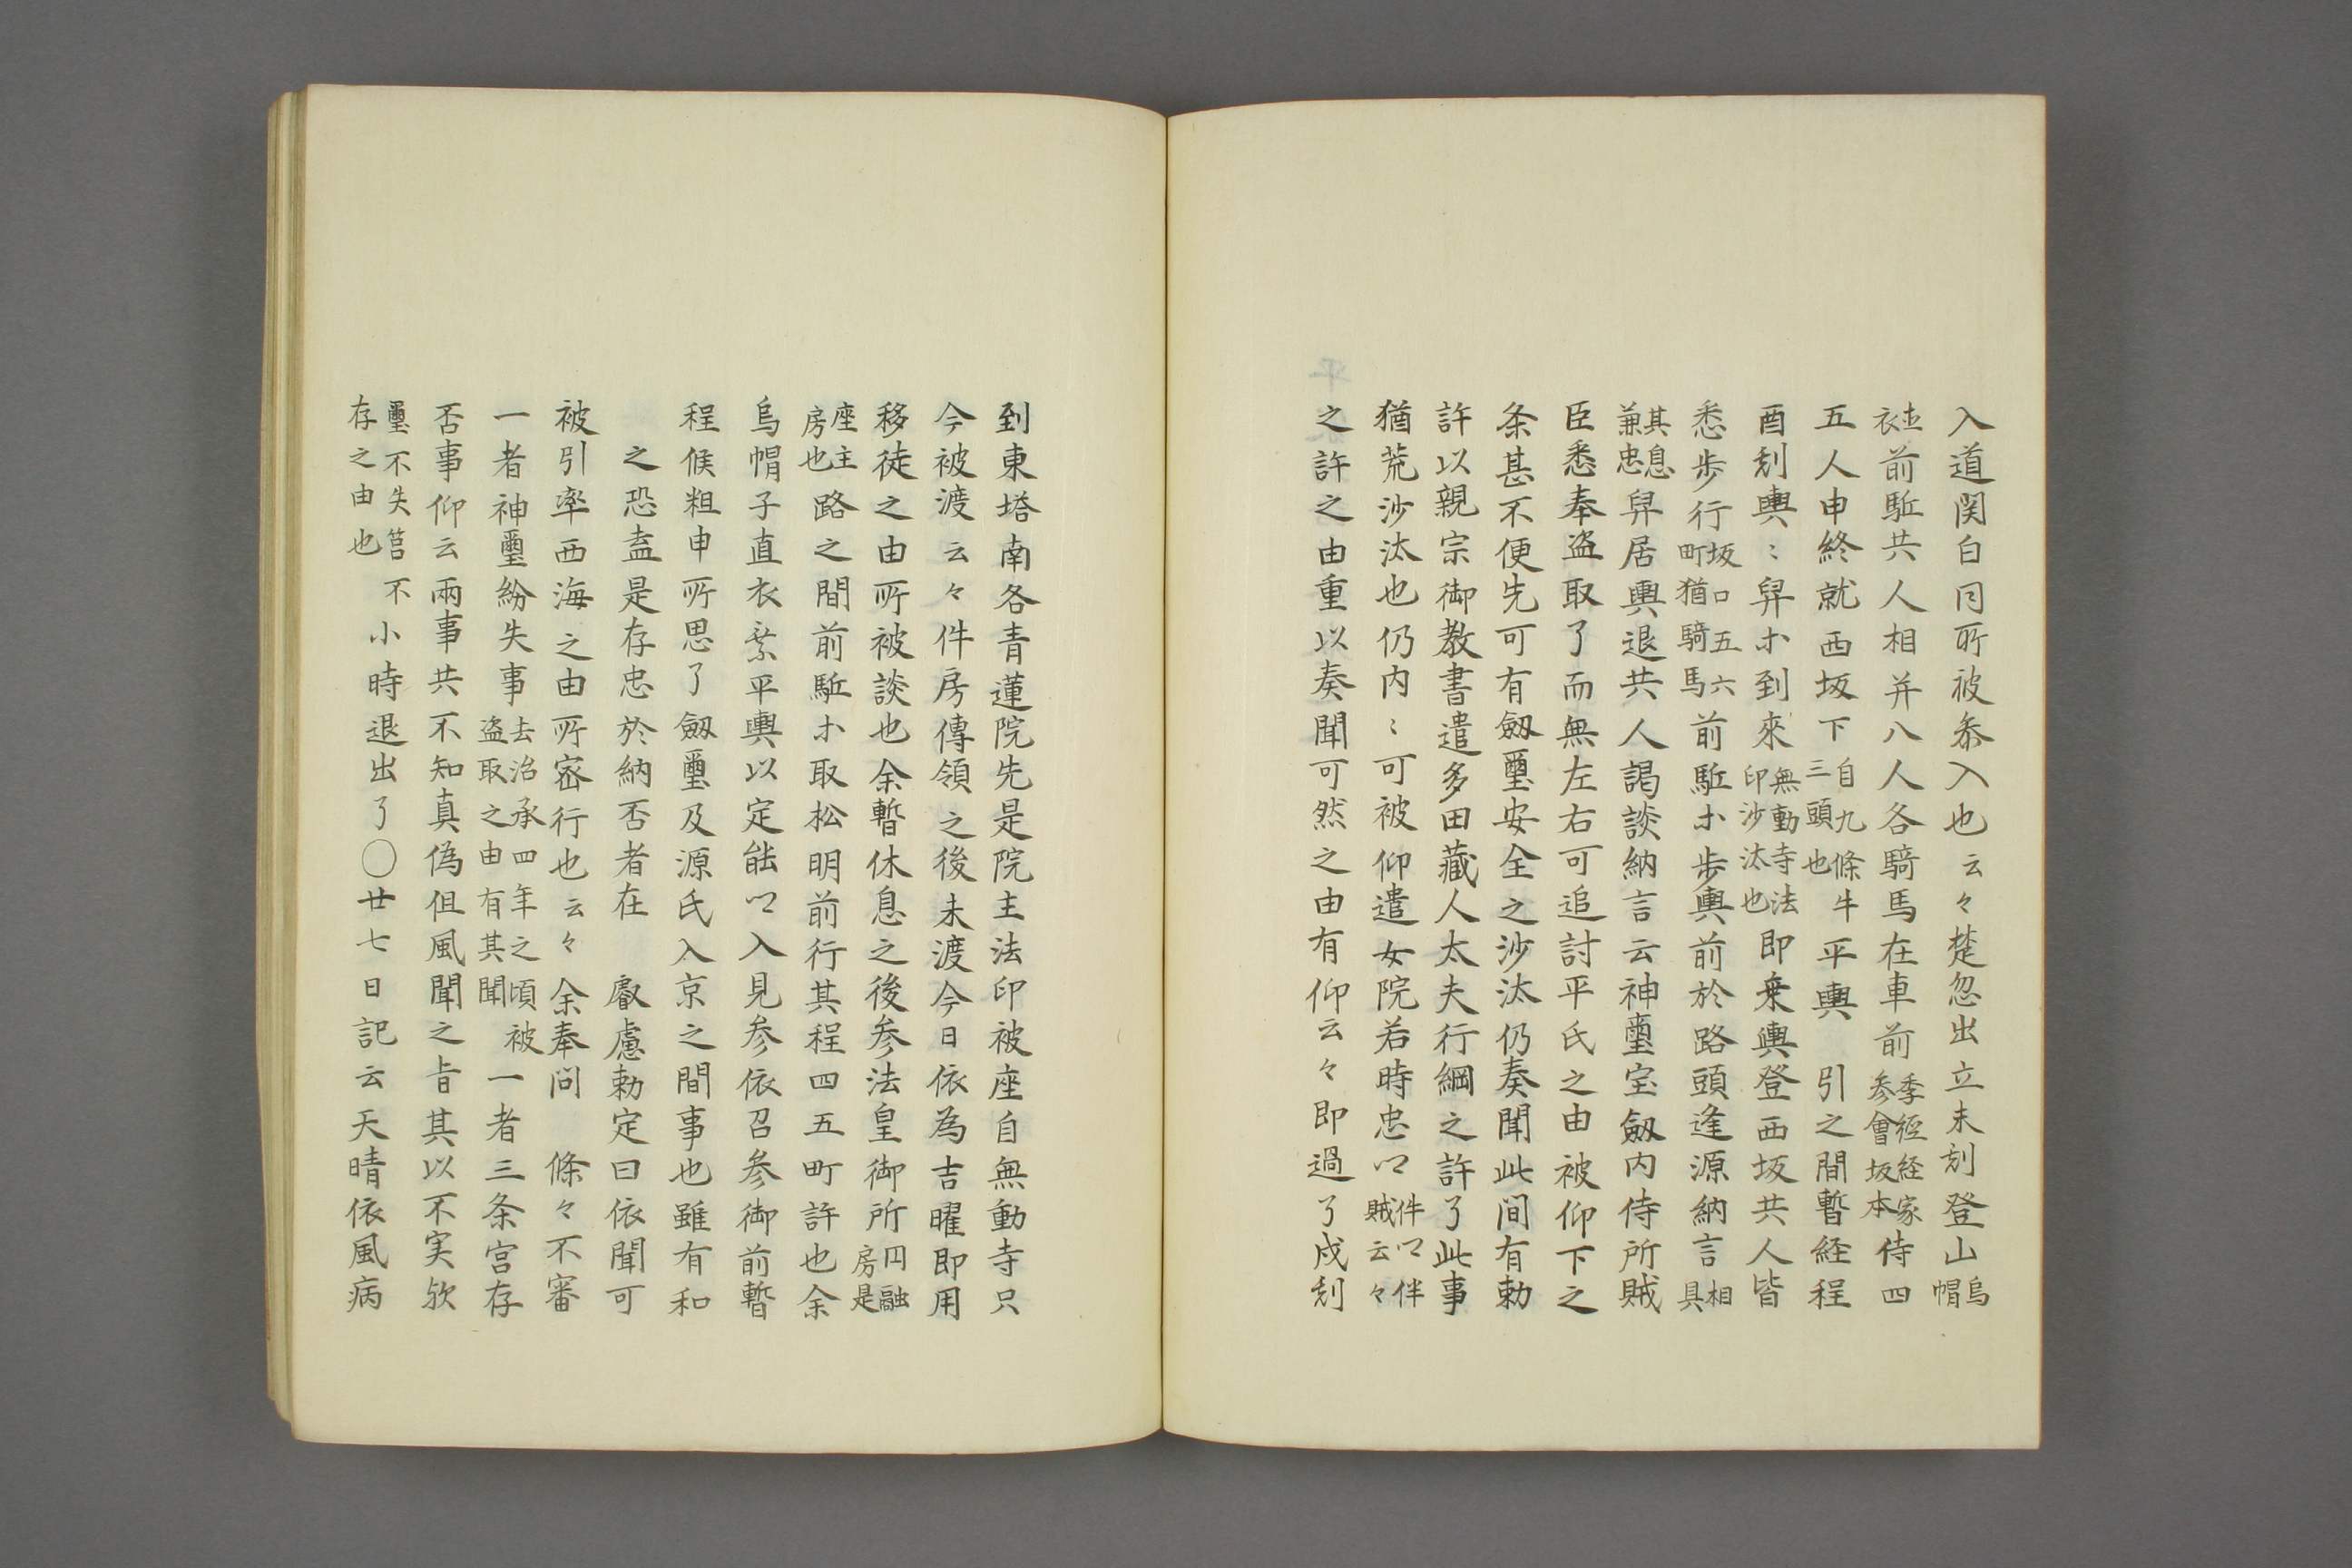 入道関白同所被参入也云々楚忽出立未刻登山烏帽
並衣前駈共人相并八人各騎馬在車前季經経家参會坂本侍四
五人申終就西坂下自九條牛三頭也平輿　引之間暫経程
酉刻輿〻舁木到來無動寺法印沙汰也即乗輿登西坂共人皆
悉歩行坂口五六町猶騎馬前駈木歩輿前於路頭逢源納言相具
其息兼忠舁居輿退共人謁談納言云神璽宝劔内侍所賊
臣悉奉盗取了而無左右可追討平氏之由被仰下之
条甚不便先可有劔璽安全之沙汰仍奏聞此间有勅
許以親宗御教書遣多田藏人太夫行綱之許了此事
猶荒沙汰也仍内〻可被仰遣女院若時忠卩件卩伴賊云々
之許之由重以奏聞可然之由有仰云々即過了戌刻
到東塔南各青蓮院先是院主法印被座自無動寺只
今被渡云々件房傳領之後未渡今日依為吉曜即用
移徒之由所被談也余暫休息之後参法皇御所円融房是
座主房也路之間前駈木取松明前行其程四五町許也余
烏帽子直衣乗平輿以定能卩入見参依召参御前暫
程候粗申所思了劔璽及源氏入京之間事也雖有和
之恐盍是存忠於納否者在　叡慮勅定曰依聞可
被引率西海之由所密行也云々余奉问　條々不審
一者神璽紛失事去治承四年之頃被盗取之由有其聞一者三条宮存
否事仰云兩事共不知真偽但風聞之旨其以不実欤
璽不失筥不存之由也小時退出了〇廿七日記云天晴依風病